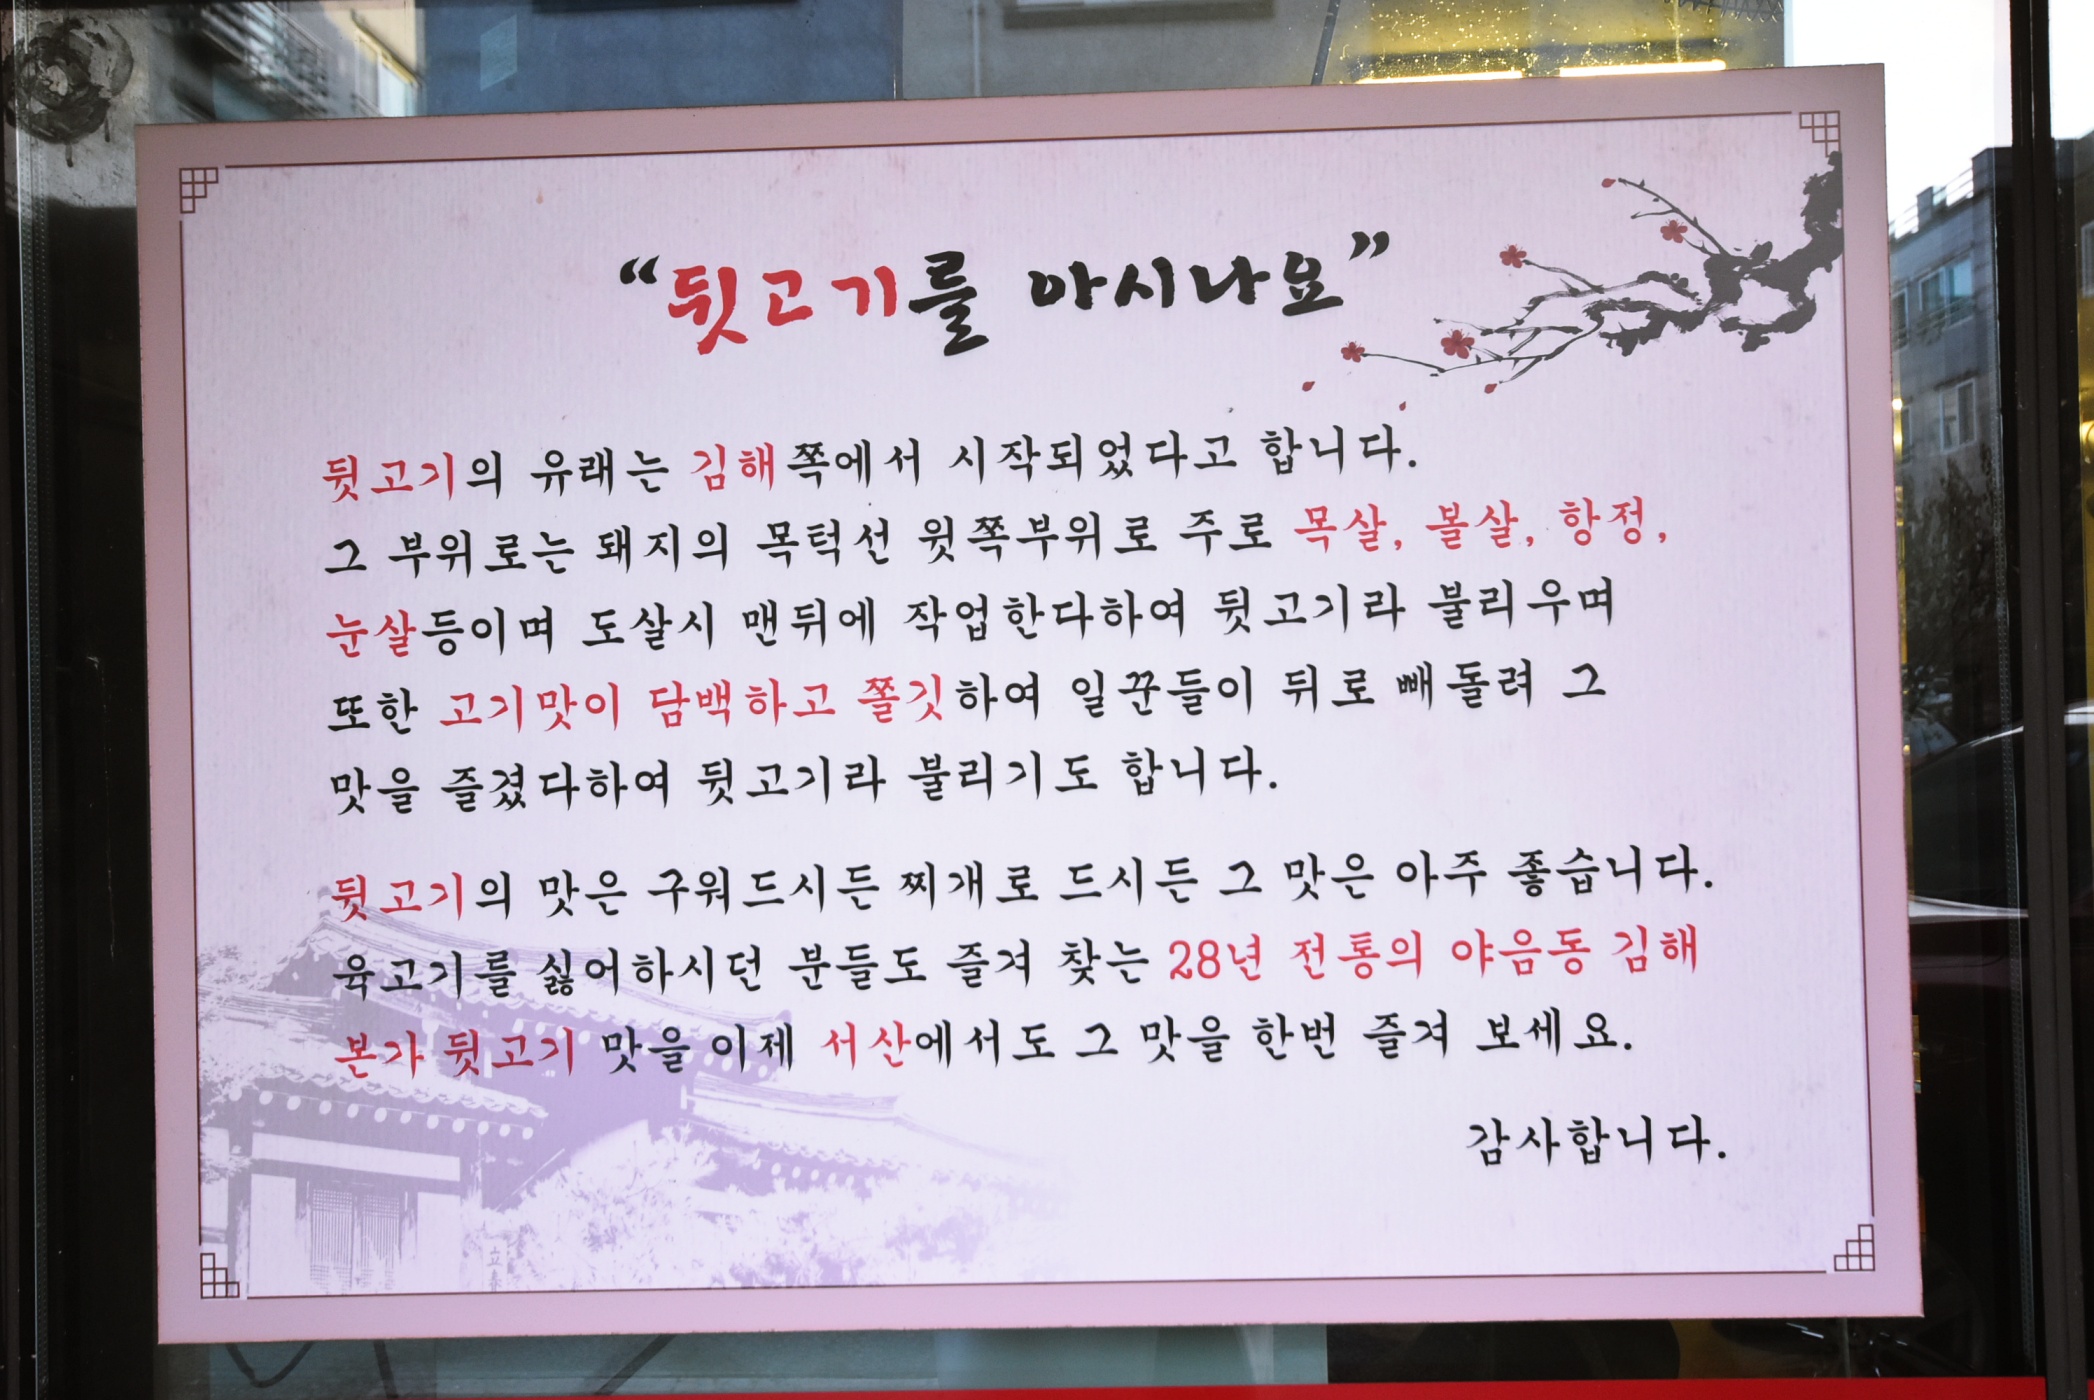 “뒷고기를 아시나요”
뒷고기의 유래는 김해쪽에서 시작되었다고 합니다.
그 부위로는 돼지의 목턱선 윗쪽부위로 주로 목살, 볼살, 항정,
눈살등이며 도살시 맨뒤에 작업한다하여 뒷고기라 불리우며
또한 고기맛이 담백하고 쫄깃하여 일꾼들이 뒤로 빼돌려 그
맛을 즐겼다하여 뒷고기라 불리기도 합니다.
뒷고기의 맛은 구워드시든 찌개로 드시든 그 맛은 아주 좋습니다.
육고기를 싫어하시던 분들도 즐겨 찾는 28년 전통의 야음동 김해
본가 뒷고기 맛을 이제 서산에서도 그 맛을 한번 즐겨 보세요.
감사합니다.